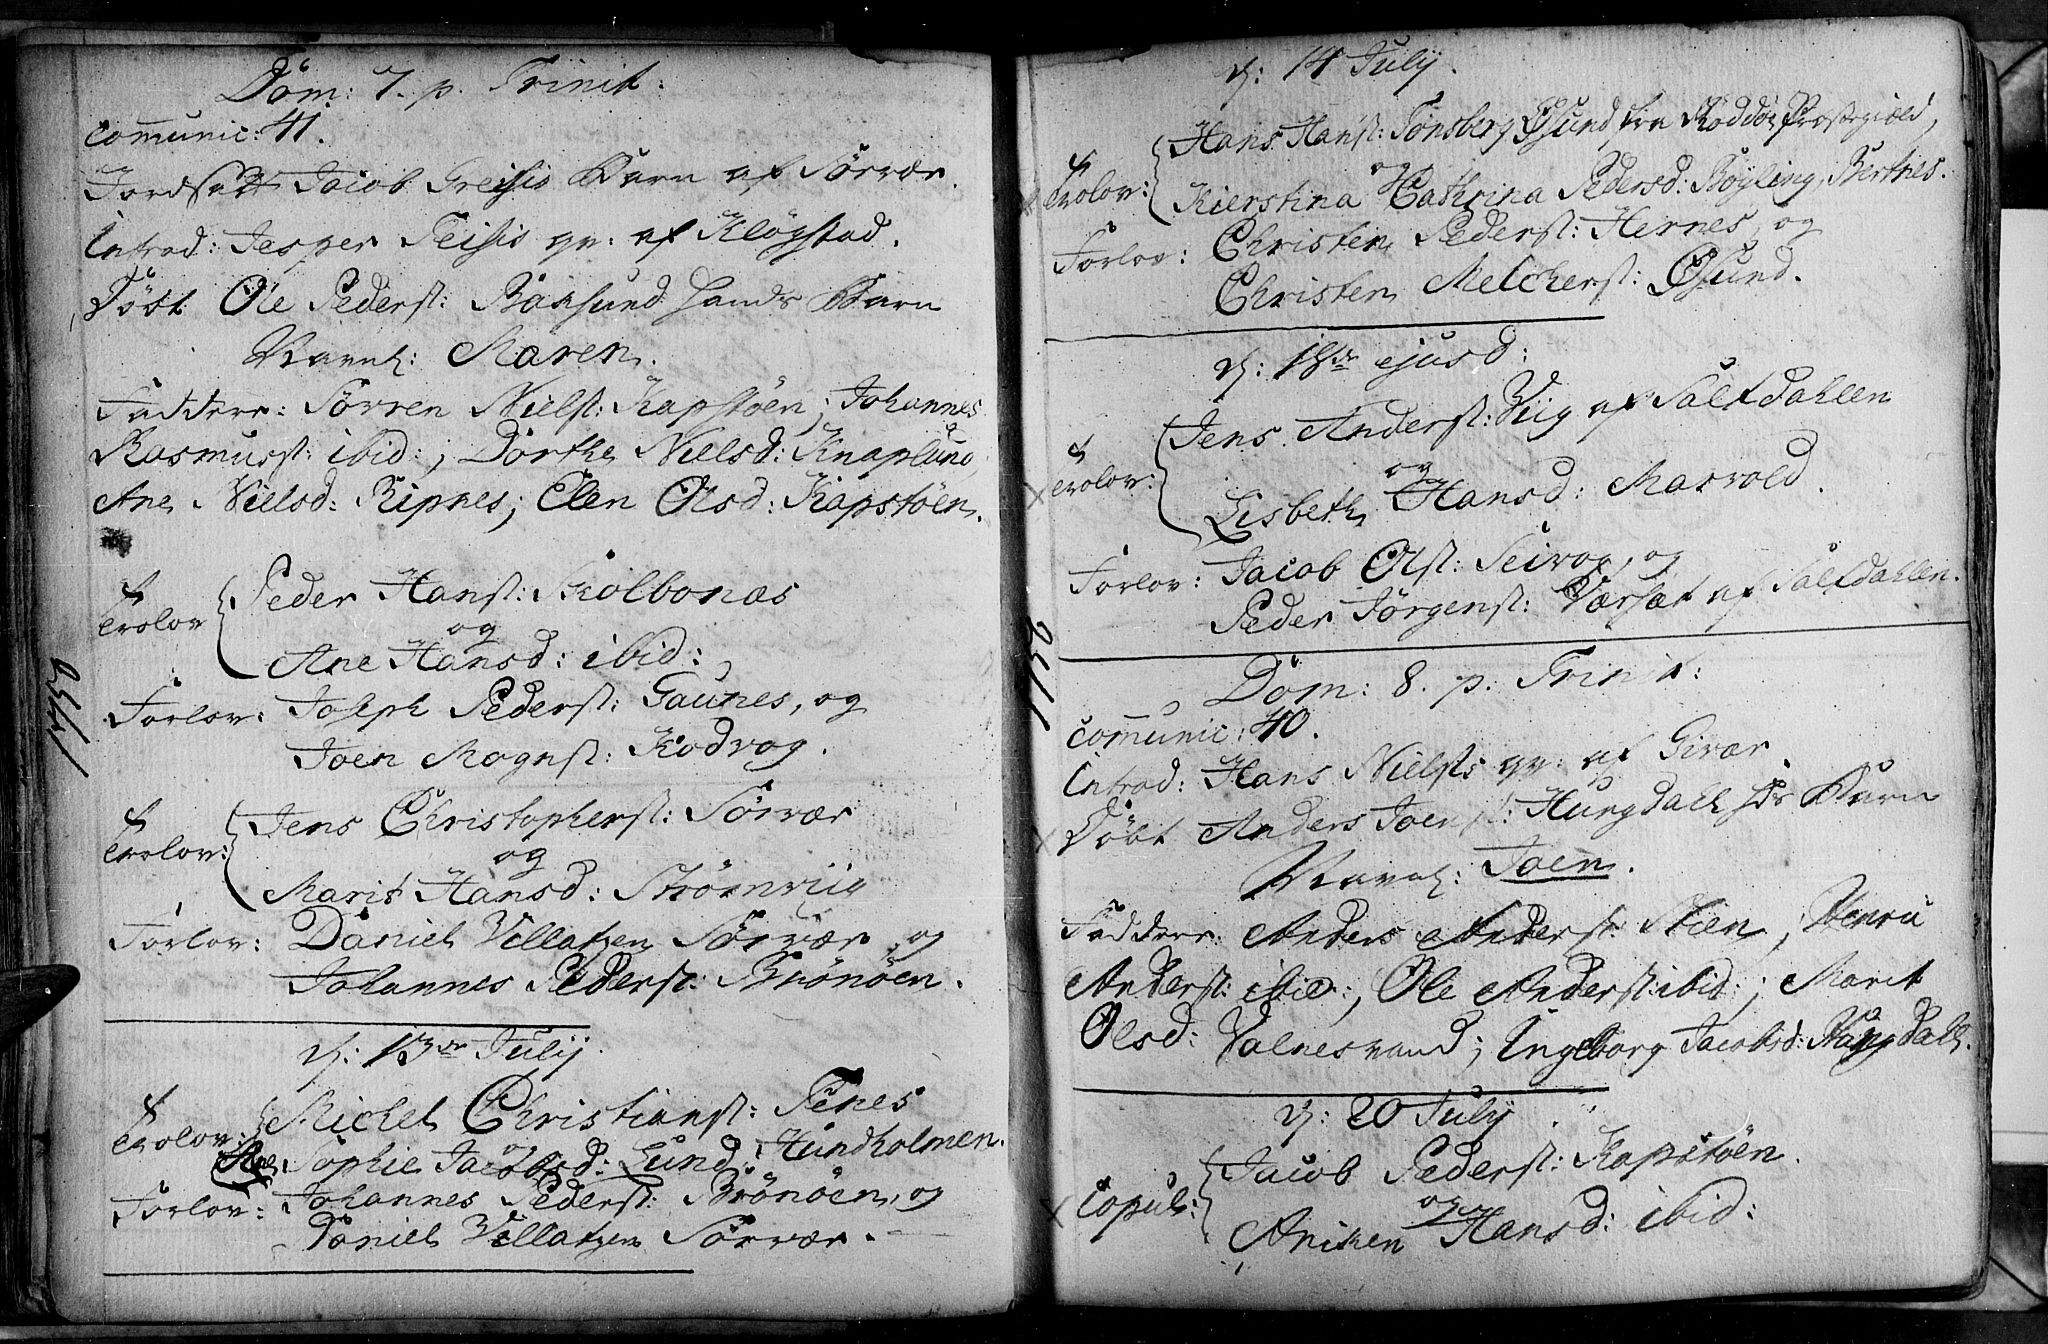 Dom: 7. p. Trinit:
Communic: 41.
Jordsatt Jacob Greisis Barn af Sørvær.
Introd: Jesper Teisis qv: af Kløgstad.
Døbt Ole Pederst: Baxsund hands Barn
Navnl: Maren.
Faddere: Sørren Nielst: Kapstøen, Johannes
Rasmusst: ibid:, Dorthe Nielsd: Knaplund
Ane Nielsd: Ripnes; Elen Olsd: Kapstøen.
Trolov
Peder Hanst: Kolbonæs
og
Ane Hansd: ibid:,
Forlov: Joseph Pederst: Gaunes, og
Joen Mognst: Kodvog.
Trolov:
Jens Christopherst: Sørvær
og
Marit Hansd: Strøenviig
Forlov: Daniel Villatzen Sørvær og
Johannes Pederst: Brønøen.
1753
d: 13de Julij.
Trolov:
Michel Christianst: Tenes
og
Ane Sophie Jacobsd: Lund, Hundholmen.
Forlov: Johannes Pederst: Brønøen, og
Daniel Villatzen Sørvær.
d: 14 Julij.
Trolov:
Hans Hanst: Tønsberg Øsund, fra Røddøe Præstegield,
og
Kierstina Cathrina Pedersd: Bøyling, Bertnes.
Forlov: Christen Pederst: Hernes, og
Christen Melcherst: Øsund.
d: 18de ejusd:
Trolov:
Jens Anderst: Viig af Saltdahlen
og
Lisbeth Hansd: Marvold.
Forlov: Jacob Olst: Seivog, og
Peder Jørgenst: Værset af Saltdahlen.
Dom: 8. p. Trinit:
Communic: 40.
Introd: Hans Nielsts qv: af Givær.
Døbt Anders Joenst: Hungdahl hds Barn
Navnl: Joen.
Faddere: Anders Anderst: Stien, Henric
Anderst: ibid:, Ole Anderst: ibid:; Marit
Olsd: Valnesvand; Ingeborg Jacobsd: Hungdahl.
d: 20 Julij
Copul:
Jacob Pederst: Kapstøen.
og
Aniken Hansd: ibid: